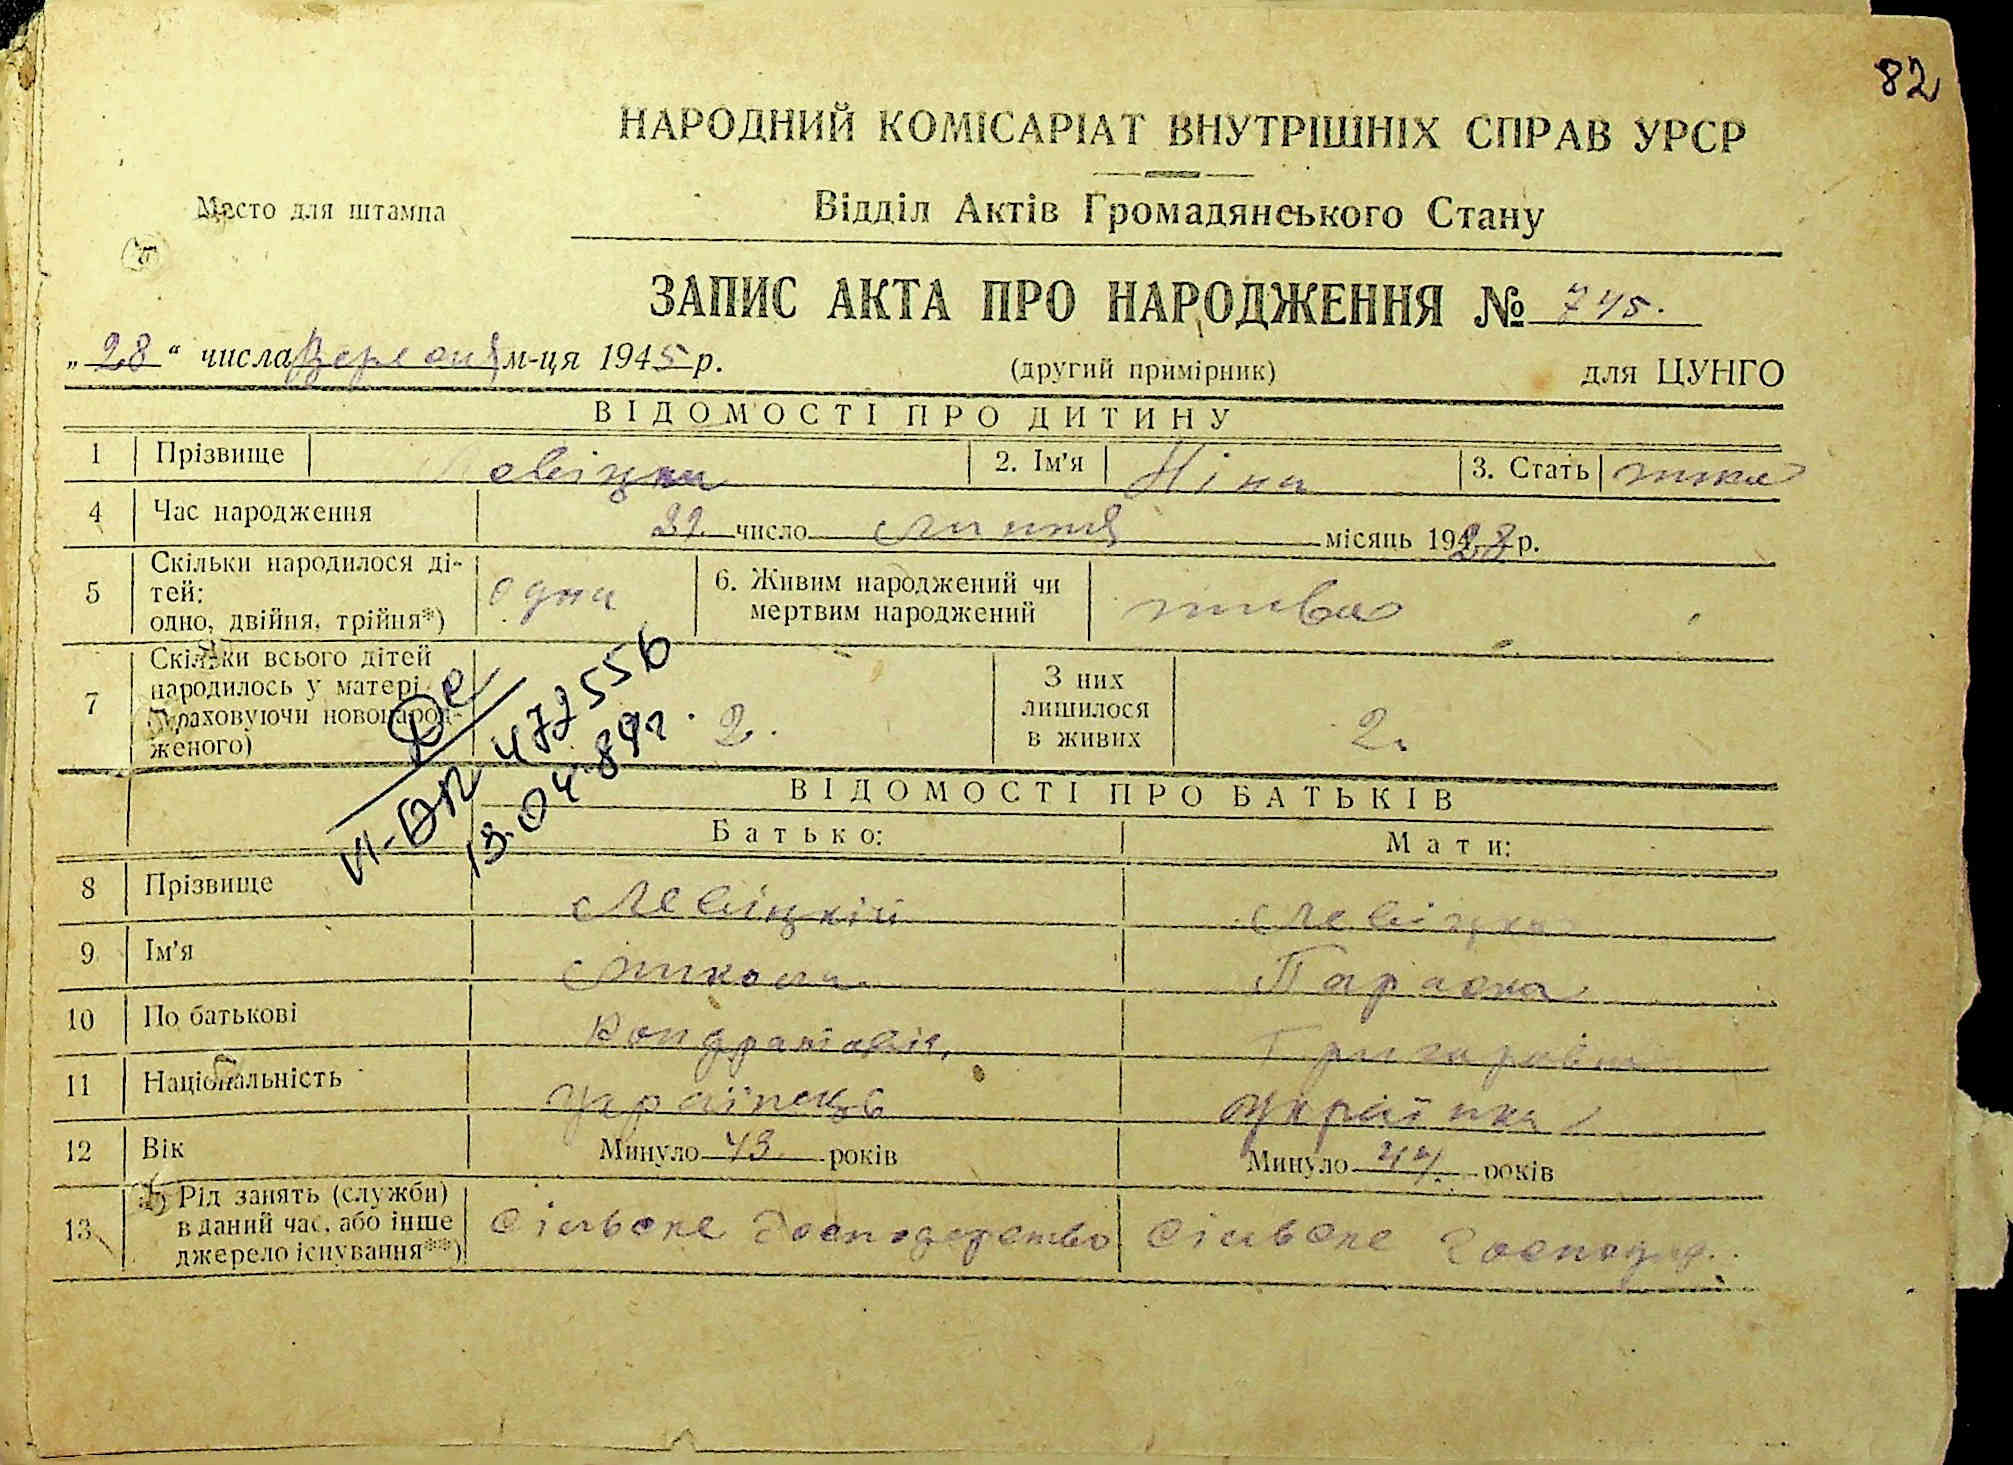 82
НАРОДНИЙ КОМІСАРІАТ ВНУТРІШНІХ СПРАВ УРСР
Место для штампа
Відділ Актів Громадянського Стану
ЗАПИС АКТА ПРО НАРОДЖЕННЯ № 745.
„28“ числа Вересня м-ця 1945 р. (другий примірник) для ЦУНГО
ВІДОМОСТІ ПРО ДИТИНУ
1 Прізвище Левіцка 2. Ім'я Ніна 3. Стать жіноч
4 Час народження число липня місяць 1928 р.
5 Скільки народилося ді-
тей:
одно, двійня, трійня*) одна 6. Живим народжений чи
мертвим народжений жива
7 Скільки всього дітей
народилось у матері
(враховуючи новонарод-
женого) 2. З них
лишилося
в живих 2.
VI-ЯП 477556
13.04.89г.
ВІДОМОСТІ ПРО БАТЬКІВ
Батько: Мати:
8 Прізвище Левіцкій Левіцка
9 Ім'я Микола Параска
10 По батькові Кондратовіч Григоровна
11 Національність Українець Українка
12 Вік Минуло 43 років Минуло 44 років
13 Рід занять (служби)
в даний час, або інше
джерело існування**) Сільске господарство Сільске господар.